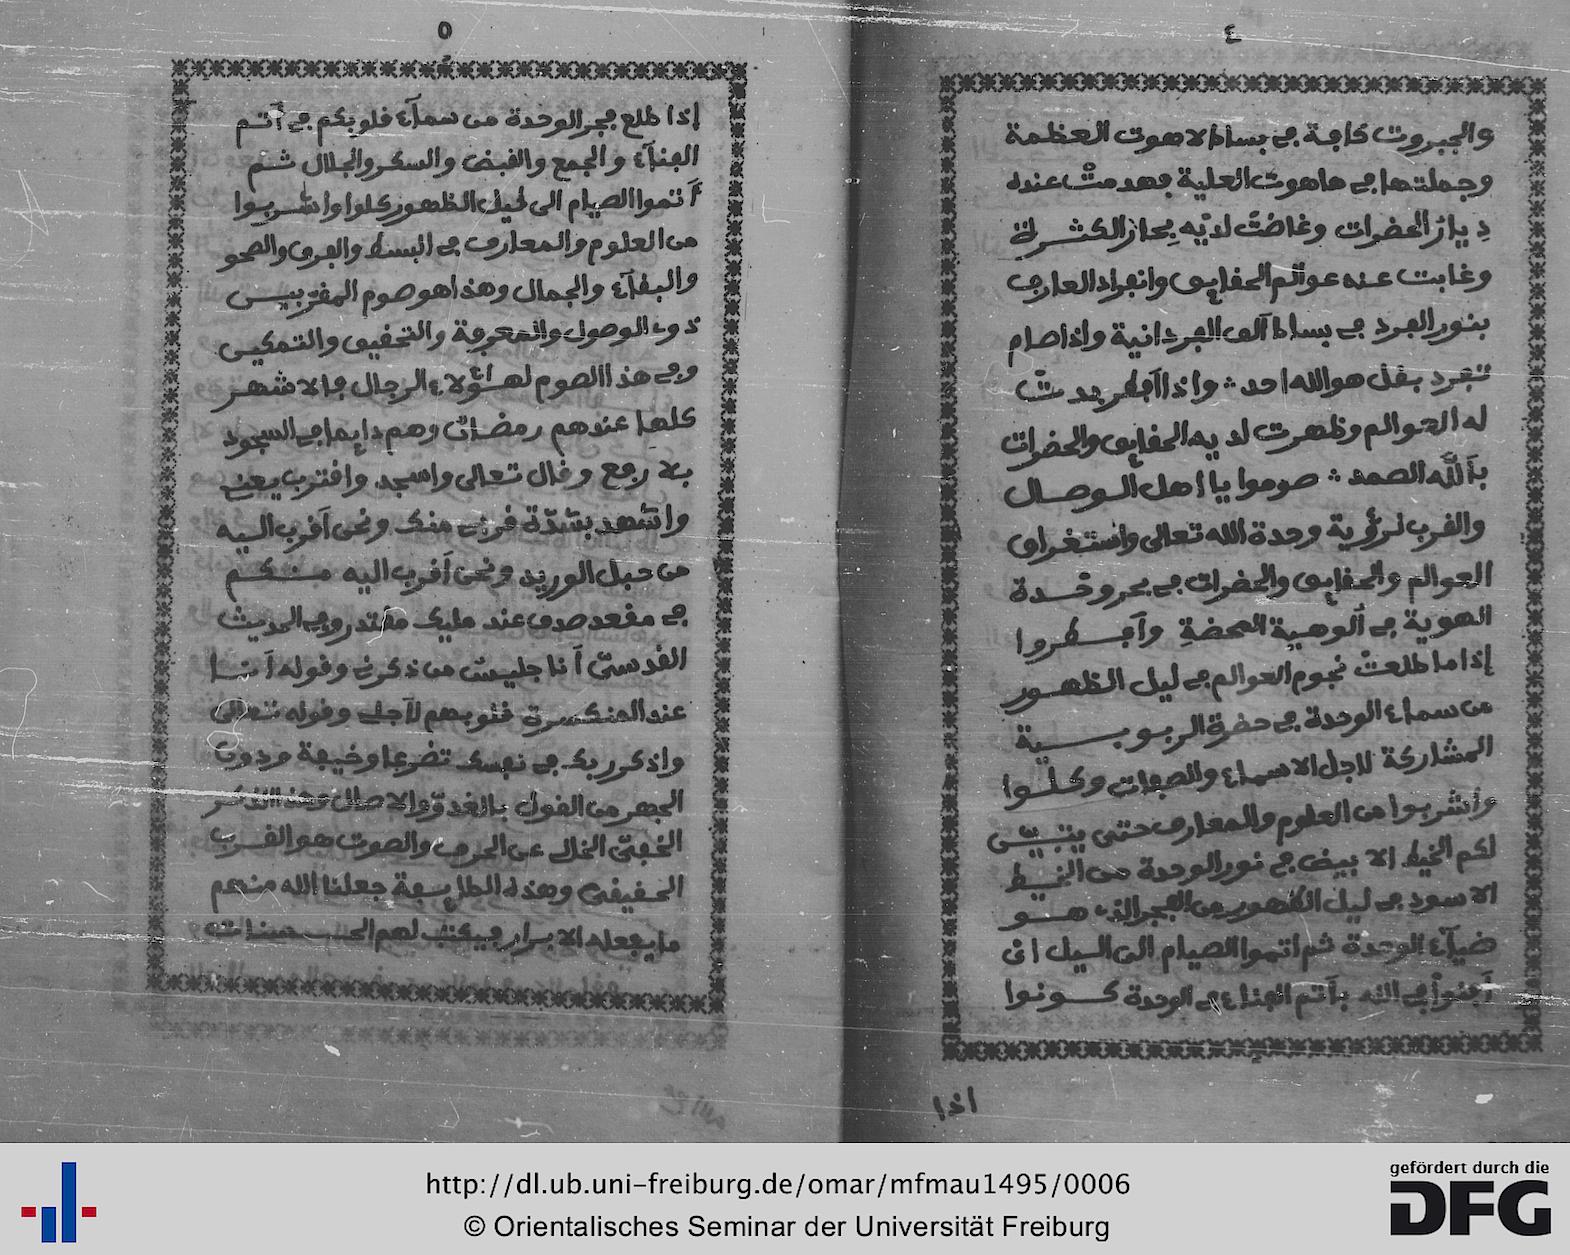 ٤
والجبروت كاجة في بساط لاهوت العظمة
وجملتها في هاهوت العلية فهدمت عنده
ديار الحضرات وغاضت لديه بحار الكثرة
وغابت عنه عوالم الحقايق وانفراد العارف
بنور الفرد في بساط آلف الفردانية واذا صام
تفرد بقل هو الله احد ؞ واذا افطر بدت
له العوالم وظهرت لديه الحقايق والحضرات
بالله الصمد ؞ صوموا يا اهل الوصال
والقرب لرؤية وحدة الله تعالى واستغراق
العوالم والحقايق والحضرات في بحر وحدة
الهوية في ألوهية المحضة وأفطروا
إذا ما طلعت نجوم العوالم في ليل الظهور
من سماء الوحدة في حضرة الربوبية
المشاركة لاجل الاسماء والصفات وكلوا
واشربوا من العلوم والمعارف حتى يتبيّن
لكم الخيط الابيض في نور الوحدة من الخيط
الاسود في ليل الظهور من الفجر الذي هو
ضيآء الوحدة ثم اتموا الصيام الى اليل اى
أفنوا في الله بأتم الفناء في الوحدة كونوا
اذا
٥
إذا طلع فجر الوحدة من سمآء قلوبكم في أتم
الفنآء والجمع والقبض والسكر والجلال ثم
أتموا الصيام الى ليل الظهور كلوا واشربوا
من العلوم والمعارف في البسط والفرق والصحو
والبقآء والجمال وهذا هو صوم المقربين
ذوى الوصول والمعرفة والتحقيق والتمكين
وفي هذا الصوم لهؤلاء الرجال فالاشهر
كلها عندهم رمضان وهم دايما في السجود
بلا رفع وقال تعالى واسجد واقترب يعنى
واشهد بشدّة قربى منك ونحن أقرب اليه
من حبل الوريد ونحن أقرب اليه منكم
في مقعد صدق عند مليك مقتدر وفي الحديث
القدسىّ أنا جليس من ذكرنى وقوله أنا
عند المنكسرة قلوبهم لأجلى وقوله تعالى
واذكر ربك في نفسك تضرعا وخيفة ودون
الجهر من القول بالغدوّ والاصال وهذا الذكر
الخفىّ الخالى عن الحرف والصوت هو القرب
الحقيقى وهذه الطايفة جعلنا الله منهم
ما يفعله الابرار فيكتب لهم حسنات
http://dl.ub.uni-freiburg.de/omar/mfmau1495/0006
© Orientalisches Seminar der Universität Freiburg
gefördert durch die
DFG